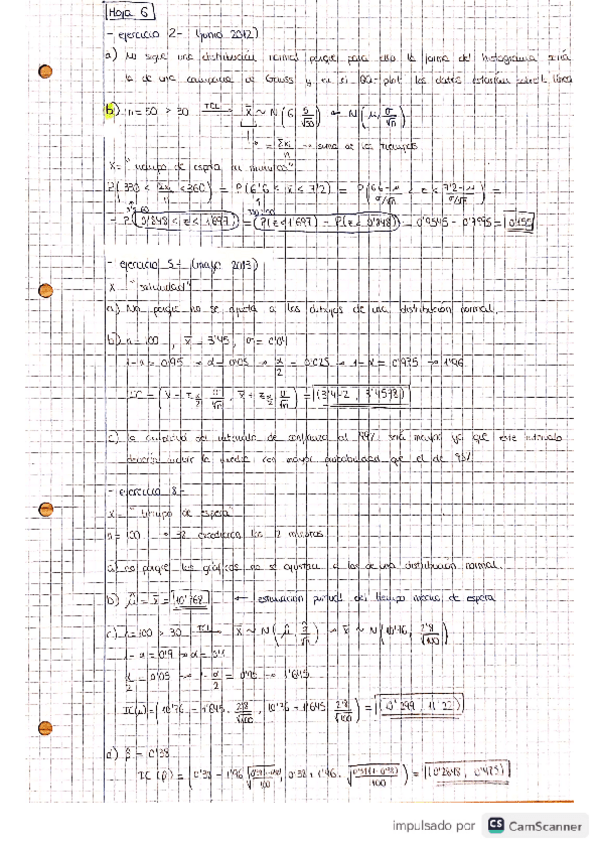 Hoja 6
- ejercicio 2 - (junio 2012)
a) No sigue una distribución normal porque para eso la forma del histograma sería
la de una campana de Gauss y en el QQ-plot los datos estarían sobre la línea
b) n = 50 > 30 TCL → x̄ ~ N(6, 5/√50) → N(μ, σ/√n)
= Σxi/n → suma de los tiempos
X = "tiempo de espera en minutos"
P(330 < Σxi < 360) = P(6'6 < x̄ < 7'2) = P(6'6-μ/σ/√n < z < 7'2-μ/σ/√n) =
= P(0'848 < z < 1'697) = P(z < 1'697) - P(z < 0'848) = 0'9545 - 0'7995 = 0'155
- ejercicio 5 - (mayo 2013)
X = "salinidad"
a) No porque no se ajusta a los dibujos de una distribución normal.
b) n = 100, x̄ = 3'45, σ = 0'04
1-α = 0'95 → α = 0'05 → α/2 = 0'025 → 1-α = 0'975 → 1'96
IC = (x̄ - z α/2 σ/√n, x̄ + z α/2 σ/√n) = (3'442, 3'4578)
c) la amplitud del intervalo de confianza al 99% será mayor ya que este intervalo
debería incluir la media con mayor probabilidad que el de 95%
- ejercicio 8 -
X = "tiempo de espera"
n = 100 → 38 excedieron los 12 minutos
a) no porque los gráficos no se ajustan a los de una distribución normal.
b) μ̂ = x̄ = 10'768 ← estimación puntual del tiempo medio de espera
c) n = 100 > 30 TCL → x̄ ~ N(μ, σ/√n) → x̄ ~ N(10'76, 2'8/√100)
1-α = 0'9 → α = 0'1
α/2 = 0'05 → 1-α/2 = 0'95 → 1'645
IC(μ) = (10'76 - 1'645 · 2'8/√100, 10'76 + 1'645 2'8/√100) = (10'299, 11'22)
d) p̂ = 0'38
IC(p̂) = (0'38 - 1'96 √0'38(1-0'38)/100, 0'38 + 1'96 · √0'38(1-0'38)/100) = (0'2848, 0'475)
impulsado por CS CamScanner